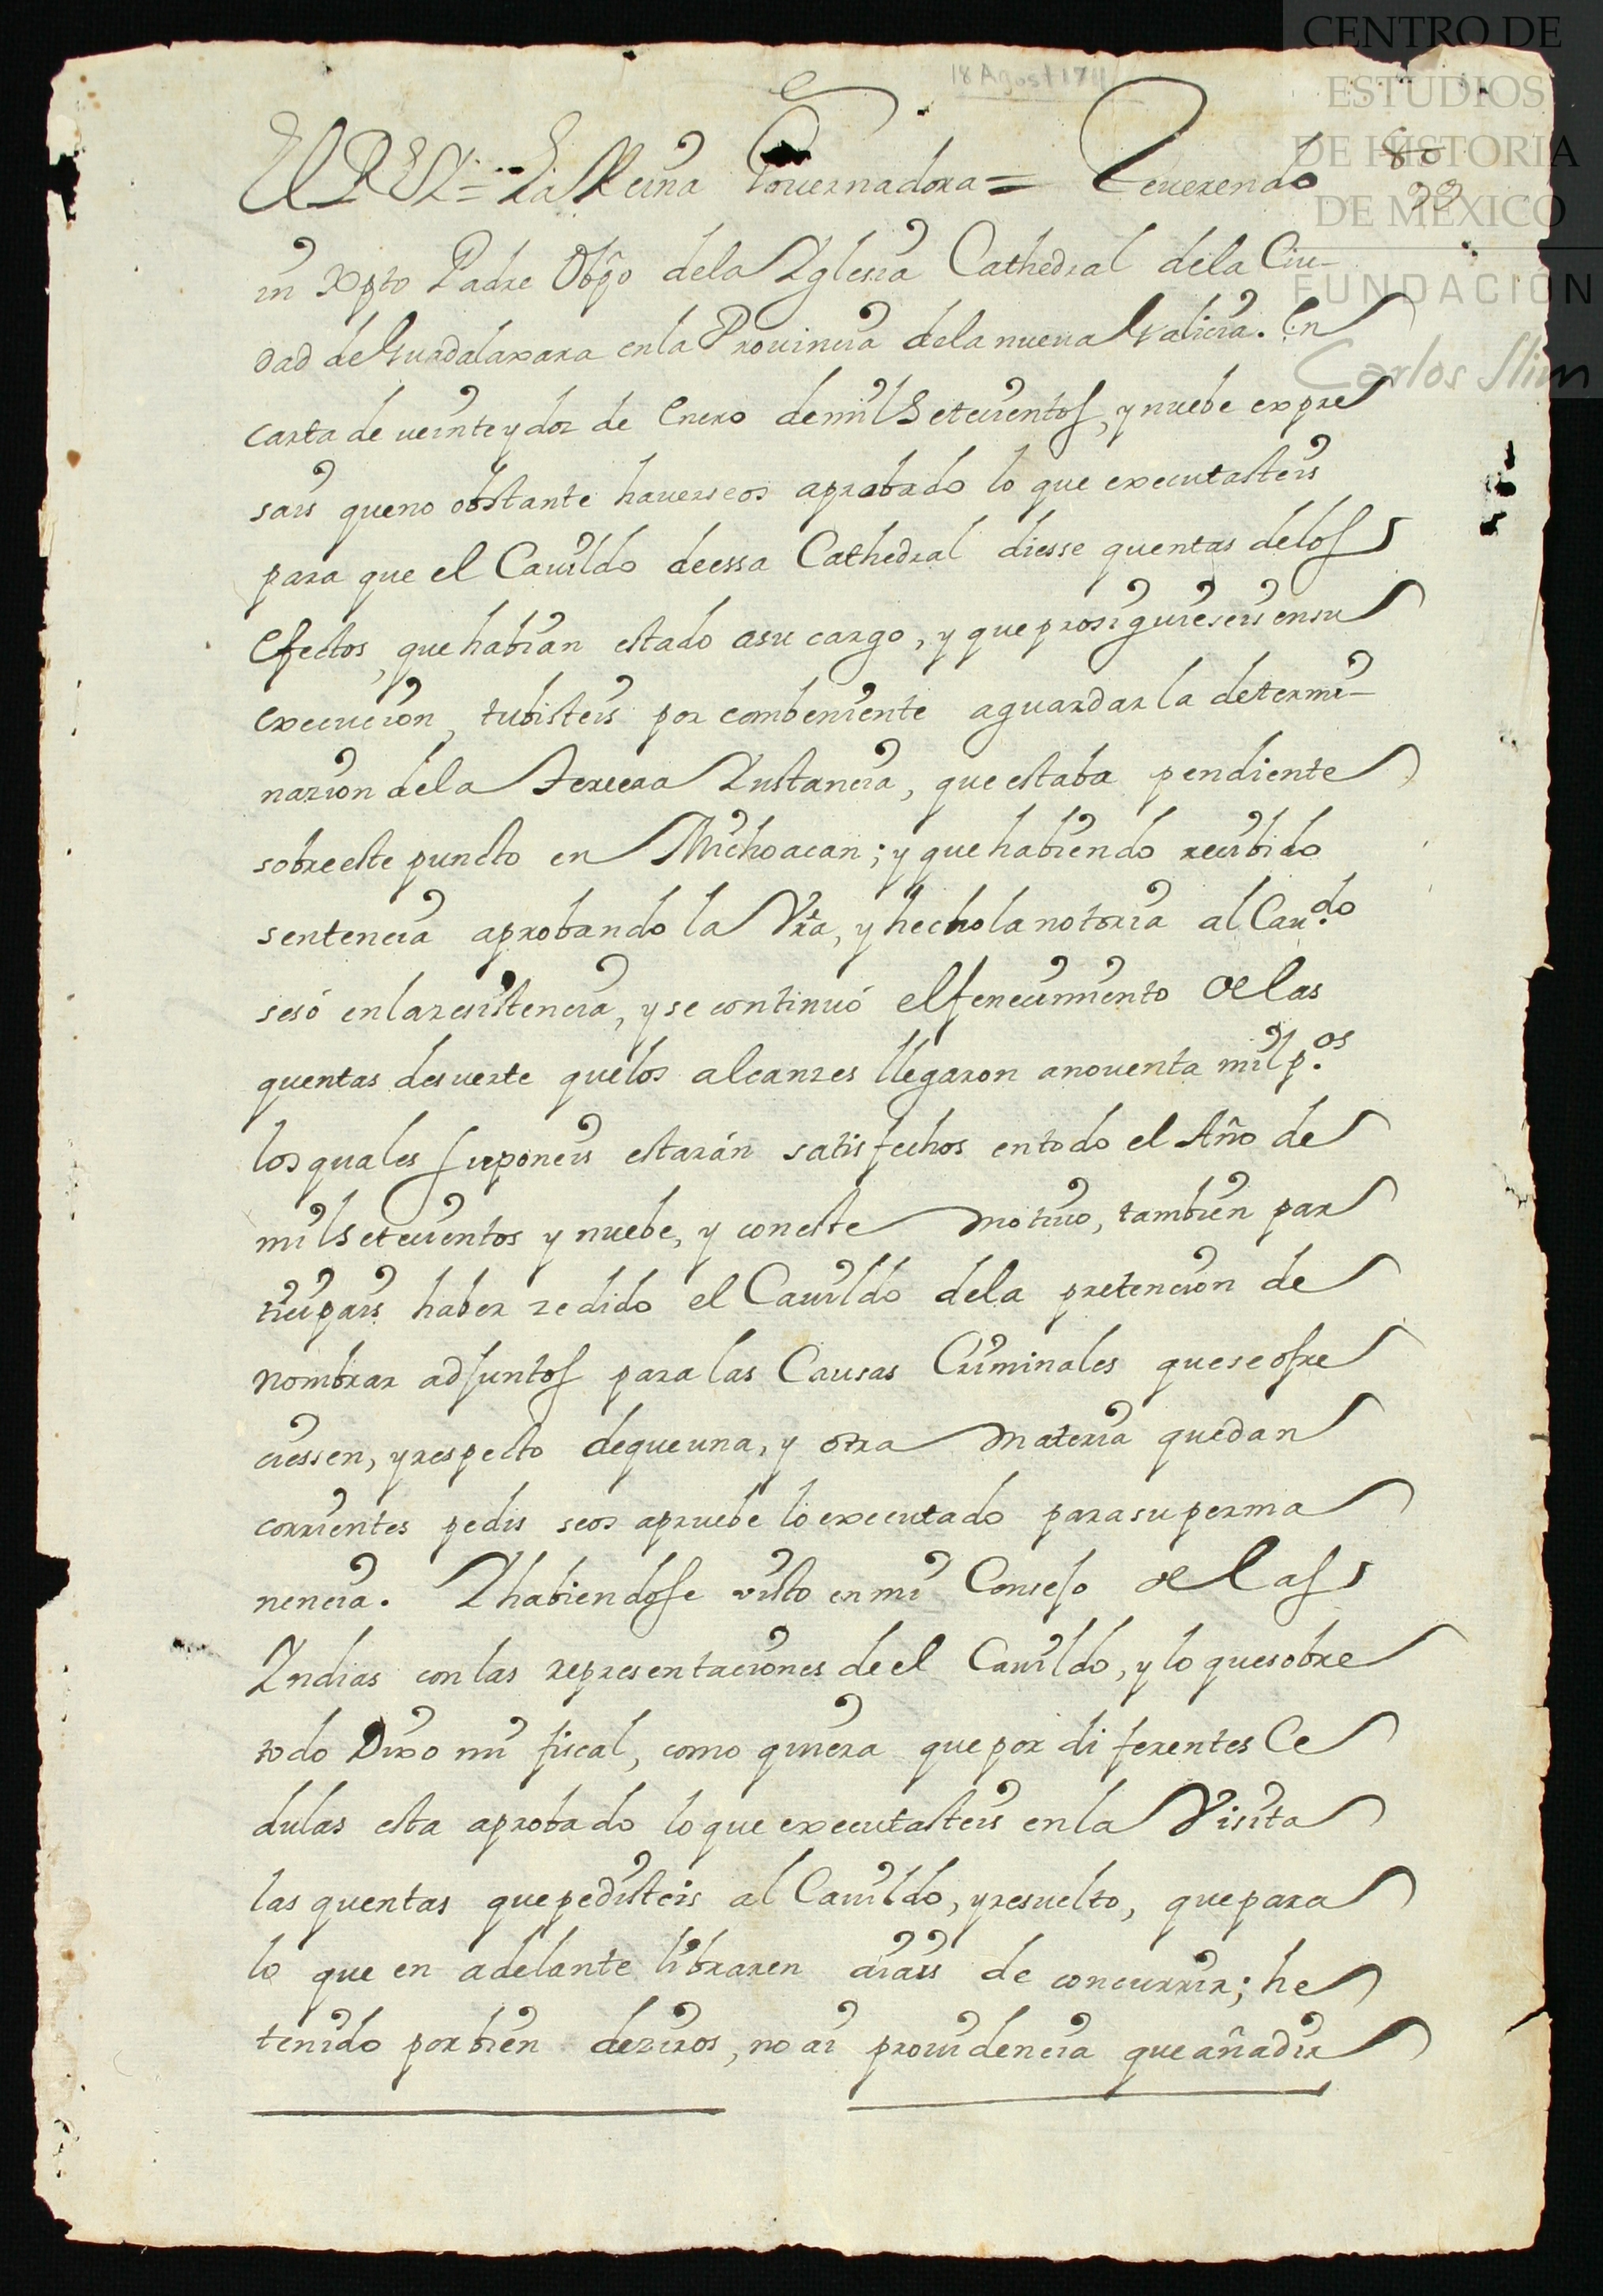 CENTRO DE
ESTUDIOS
DE HISTORIA
DE MÉXICO
FUNDACIÓN
Carlos Slim
18 Agost 1711
80
99
El REY = La Reina Gouernadora = Reuerendo
in Xpto Padre Obpo de la Yglesia Cathedral de la Ciu-
dad de Guadalaxara en la Prouincia de la nueua Galicia. En
carta de veinte y dos de Enero de mil Setecientos, y nuebe expre
sais que no obstante haverseos aprobado lo que executasteis
para que el Cauildo de essa Cathedral diesse quentas de los
efectos, que habian estado a su cargo, y que prosiguieseis en su
execucion, tubisteis por combeniente aguardar la determi-
nazion de la terzera Ynstancia, que estaba pendiente
sobre este puncto en Michoacan; y que habiendo recibido
sentencia aprobando la Vra, y hecho la notoria al Cau.do
sesó en la resistencia, y se continuó el fenecimiento de las
quentas de suerte que los alcanzes llegaron a nouenta mil p.os
los quales suponeis estarán satisfechos en todo el Año de
mil Setecientos y nuebe, y con este motiuo, tambien par
ticipais haber zedido el Cauildo de la pretencion de
nombrar adjuntos para las Causas Criminales que se ofre
ciessen, y respecto de que una, y otra materia quedan
corrientes pedis seos apruebe lo executado para su perma
nencia. Y habiendosse visto en mi Consejo de las
Yndias con las representaciones de el Cauildo, y lo que sobre
todo Dixo mi fiscal, como quiera que por diferentes Ce
dulas esta aprobado lo que executasteis en la Visita
las quentas que pedisteis al Cauildo, y resuelto, que para
lo que en adelante libraren aiais de concurrir; he
tenido por bien deziros, no ai prouidencia que añadir